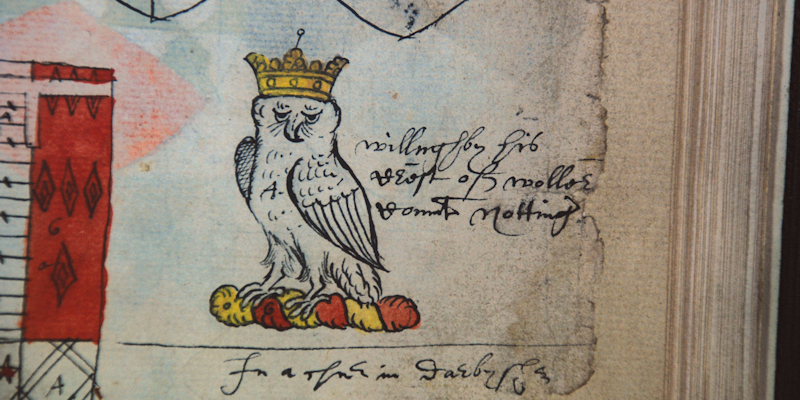 willughby his
crest off woller
com̄ Notting
A
A
In a chur in Darbyshr